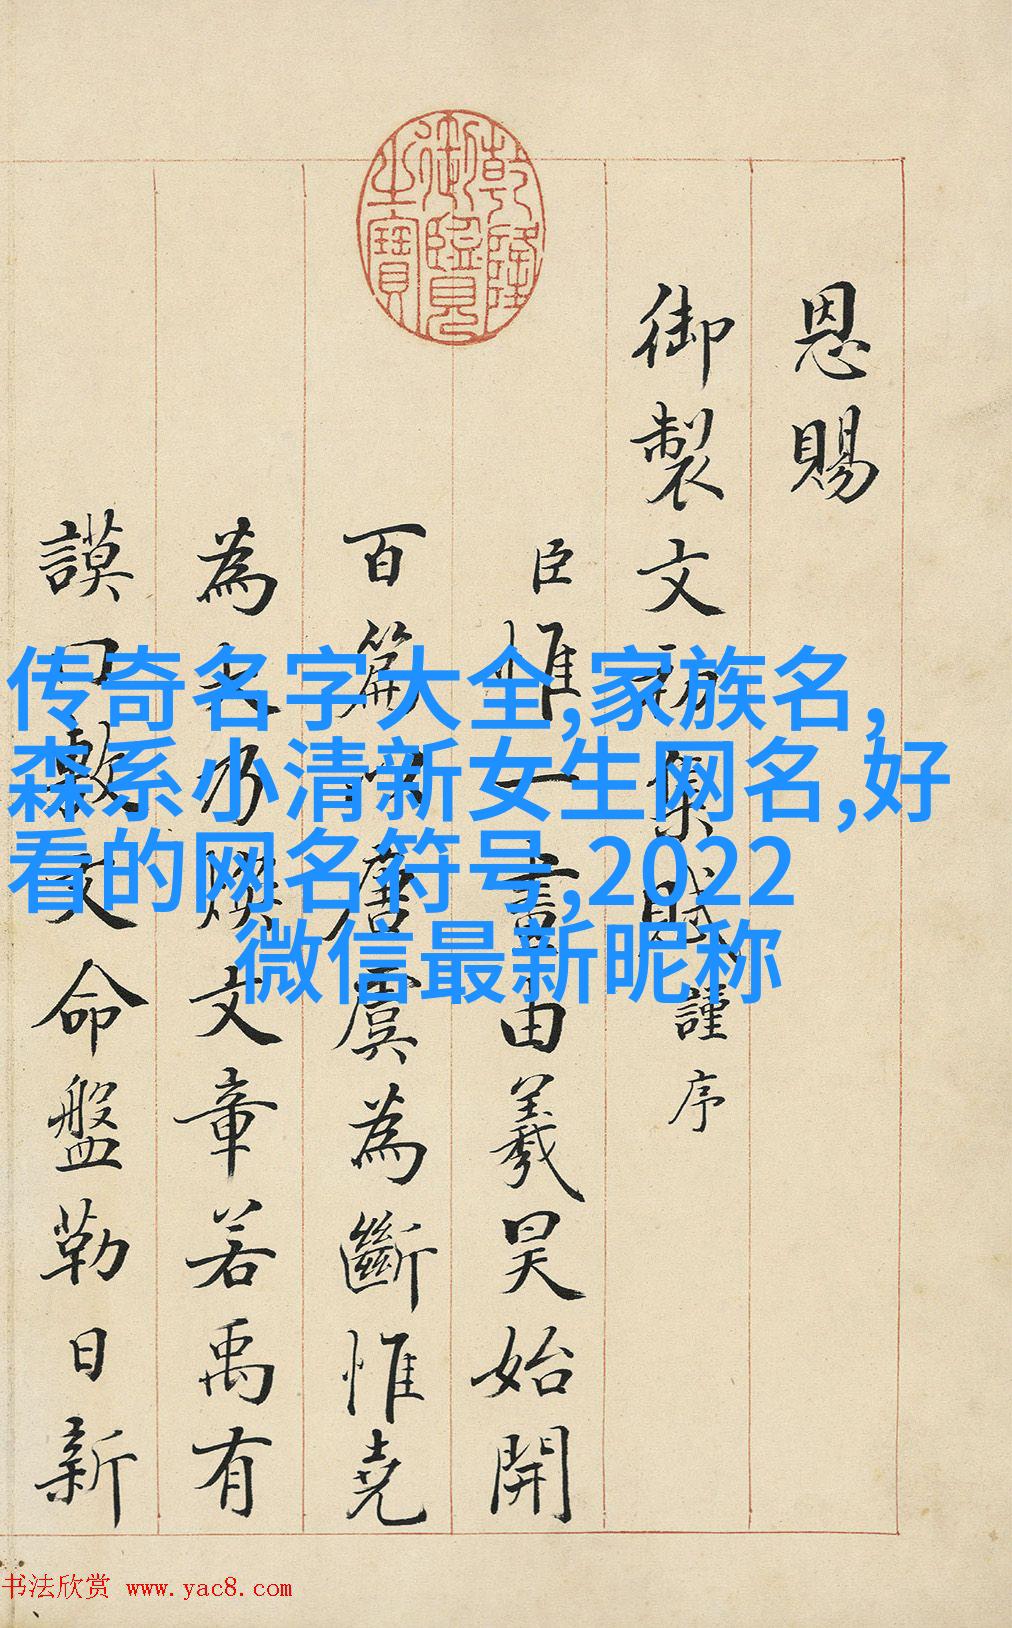 乾隆御覽之寶
恩賜
御製文初集賦謹序
臣惟一畫由羲昊始開
百篇以唐虞為斷惟堯
為大乃煥文章若禹有
謨曰敷文命盤勒日新
传奇名字大全,家族名,
森系小清新女生网名,好
看的网名符号,2022
微信最新昵称
书法欣赏 www.yac8.com